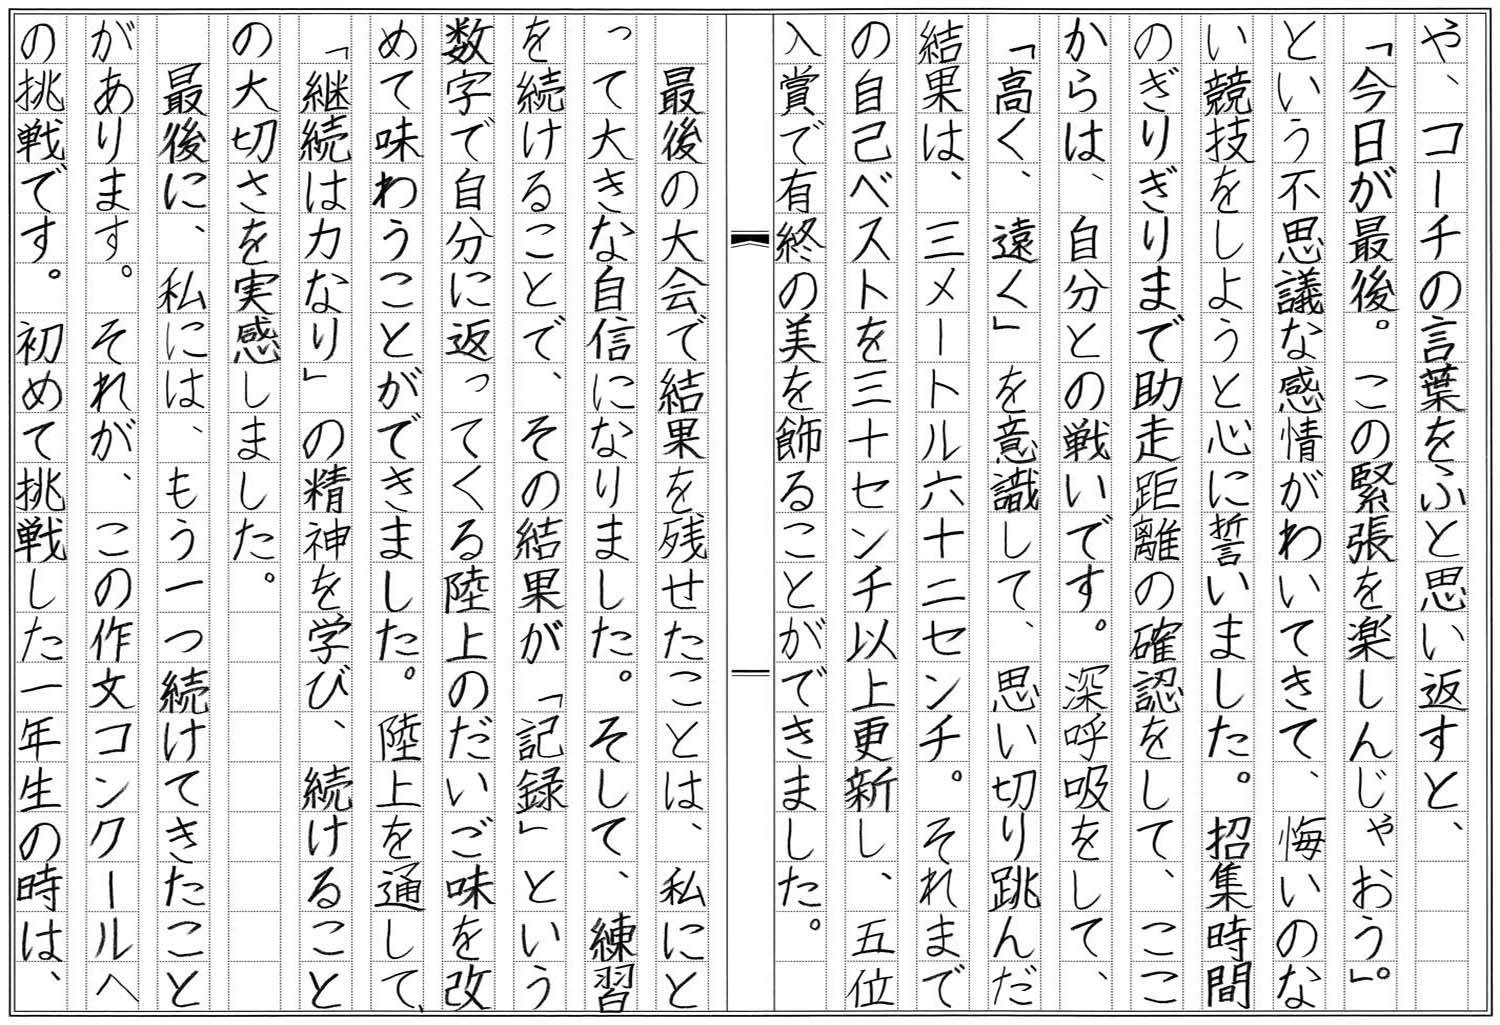 や、コーチの言葉をふと思い返すと、
「今日が最後。この緊張を楽しんじゃおう」。
という不思議な感情がわいてきて、悔いのな
い競技をしようと心に誓いました。招集時間
のぎりぎりまで助走距離の確認をして、ここ
からは、自分との戦いです。深呼吸をして、
「高く、遠く」を意識して、思い切り跳んだ
結果は、三メートル六十二センチ。それまで
の自己ベストを三十センチ以上更新し、五位
入賞で有終の美を飾ることができました。
最後の大会で結果を残せたことは、私にと
って大きな自信になりました。そして、練習
を続けることで、その結果が「記録」という
数字で自分に返ってくる陸上のだいご味を改
めて味わうことができました。陸上を通して、
「継続は力なり」の精神を学び、続けること
の大切さを実感しました。
最後に、私には、もう一つ続けてきたこと
があります。それが、この作文コンクールへ
の挑戦です。初めて挑戦した一年生の時は、